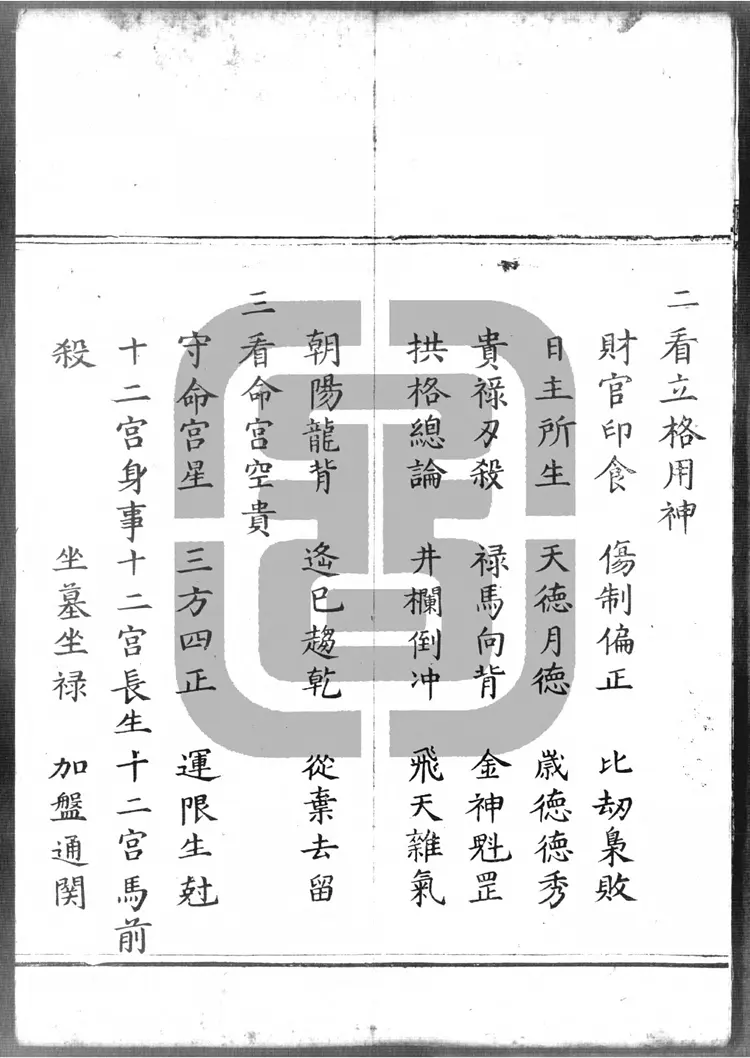 二看立格用神
財官印食 傷制偏正 比刼梟敗
日主所生 天德月德 歲德德秀
貴祿刃殺 祿馬向背 金神魁罡
拱格總論 井欄倒冲 飛天雜氣
朝陽龍背 遙巳趨乾 從棄去留
三看命宮空貴
守命宮星 三方四正 運限生尅
十二宮身事 十二宮長生 十二宮馬前
殺 坐墓坐祿 加盤通関